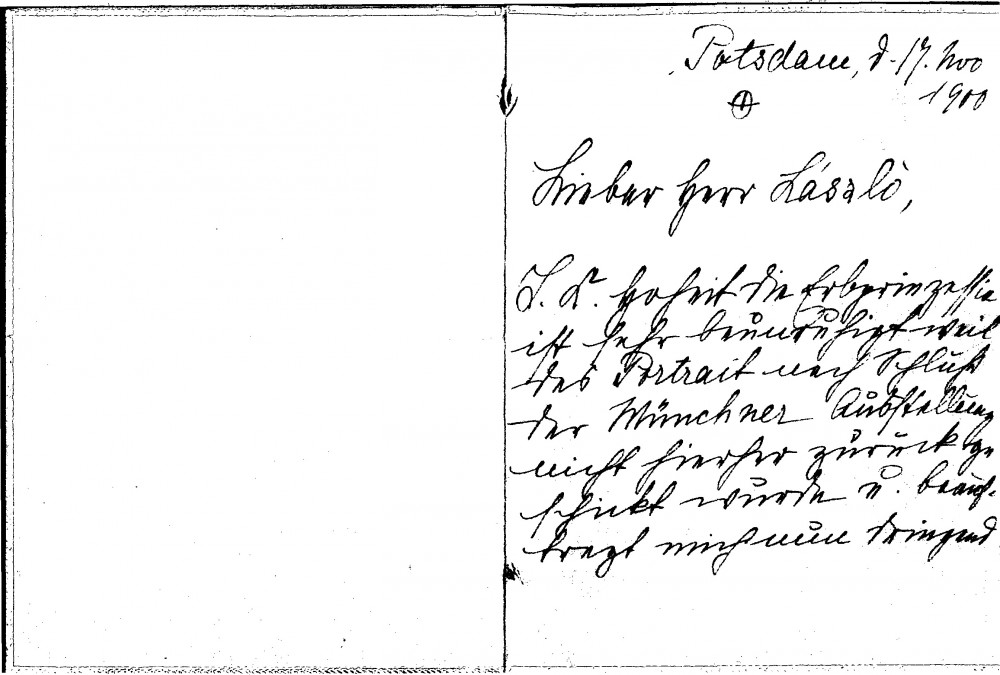 Potsdam, d. 17. Nov
1900
Lieber Herr László,
I. K. Hoheit die Erbprinzessin
ist sehr beunruhigt weil
das Portrait nach Schluß
der Münchner Ausstellung
nicht hierher zurück ge
schickt wurde u. beauf-
tragt mich nun dringend